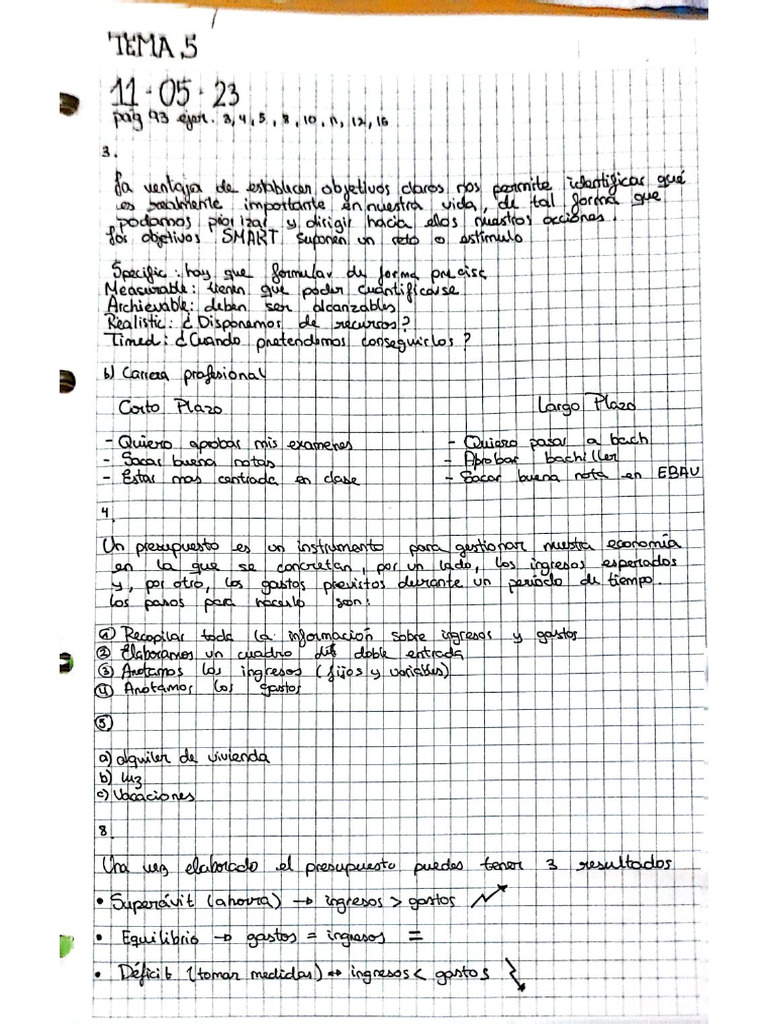 TEMA 5
11-05-23
pág 93 ejer. 3, 4, 5, 8, 10, 11, 12, 15
3.
La ventaja de establecer objetivos claros nos permite identificar qué
es realmente importante en nuestra vida, de tal forma que
podamos priorizar y dirigir hacia ellos nuestros acciones.
Los objetivos SMART suponen un reto o estímulo
Specific: hay que formular de forma precisa
Measurable: tienen que poder cuantificarse
Archievable: deben ser alcanzables
Realistic: ¿Disponemos de recursos?
Timed: ¿Cuando pretendemos conseguirlos?
b) Carrera profesional
Corto Plazo Largo Plazo
- Quiero aprobar mis examenes - Quiero pasar a bach
- Sacar buena notas - Aprobar bachiller
- Estar mas centrada en clase - Sacar buena nota en EBAU
4.
Un presupuesto es un instrumento para gestionar nuestra economía
en la que se concretan, por un lado, los ingresos esperados
y, por otro, los gastos previstos durante un período de tiempo.
Los pasos para hacerlo son:
① Recopilar toda la información sobre ingresos y gastos
② Elaboramos un cuadro de doble entrada
③ Anotamos los ingresos (fijos y variables)
④ Anotamos los gastos
⑤
a) alquiler de vivienda
b) luz
c) Vacaciones
8.
Una vez elaborado el presupuesto puedes tener 3 resultados
• Superávit (ahorra) → ingresos > gastos
• Equilibrio → gastos = ingresos =
• Déficit (tomar medidas) → ingresos < gastos